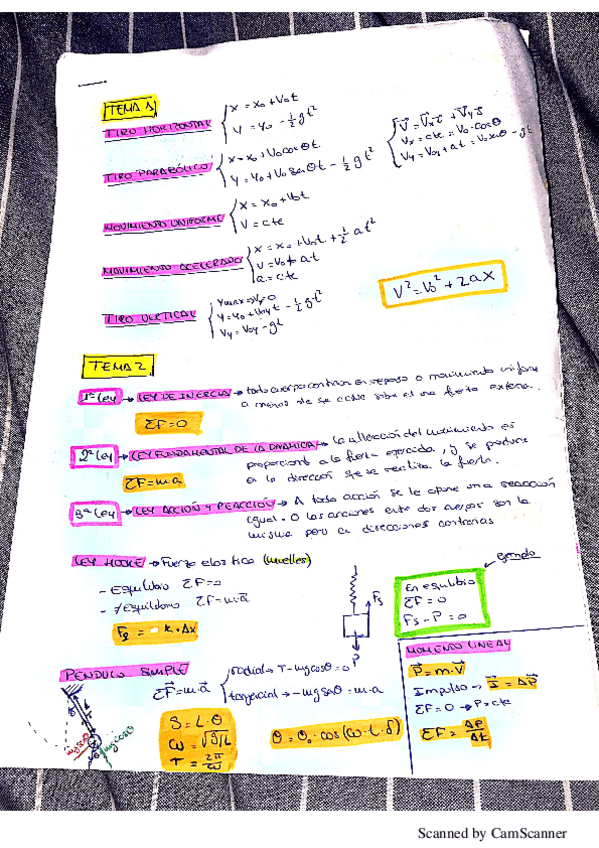 TEMA 1
TIRO HORIZONTAL
x = x₀ + v₀t
y = y₀ - 1/2 gt²
TIRO PARABÓLICO
x = x₀ + v₀ cosθ t.
y = y₀ + v₀ senθ t - 1/2 gt²
Vx = cte = v₀ · cosθ
Vy = V₀y + at = v₀ senθ - gt
MOVIMIENTO UNIFORME
x = x₀ + v₀t
v = cte
MOVIMIENTO ACELERADO
x = x₀ + v₀t + 1/2 at²
v = v₀ + at
a = cte
V² = V₀² + 2ax
TIRO VERTICAL
Ymax → Vy = 0
y = y₀ + v₀y t - 1/2 gt²
Vy = V₀y - gt
TEMA 2
1ª Ley → LEY DE INERCIA → todo cuerpo continua en reposo o movimiento uniforme
a menos de se actue sobre el una fuerza externa.
ΣF = 0
2ª Ley → LEY FUNDAMENTAL DE LA DINAMICA → la alteración del movimiento es
proporcional a la fuerza ejercida, y se produce
en la dirección que se realiza la fuerza.
ΣF = m·a
3ª Ley → LEY ACCIÓN Y REACCIÓN → A toda acción se le opone una reacción
igual. O las acciones entre dos cuerpos son la
misma pero en direcciones contrarias
LEY HOOKE → Fuerza elastica (muelles)
- Equilibrio ΣF = 0
- ≠ Equilibrio ΣF = m·a
F = - k · Δx
Fs
P
ejemplo
En equilibrio
ΣF = 0
Fs - P = 0
PENDULO SIMPLE
ΣF = m·a
radial → T - mg cosθ = 0
tangencial → - mg senθ = m·a
S = L·θ
ω = √g/L
T = 2π/ω
θ = θ₀ · cos(ω·t·δ)
mg senθ
mg cosθ
MOMENTO LINEAL
P = m·V
Impulso → I = ΔP
ΣF = 0 → P = cte
ΣF = ΔP/Δt
Scanned by CamScanner